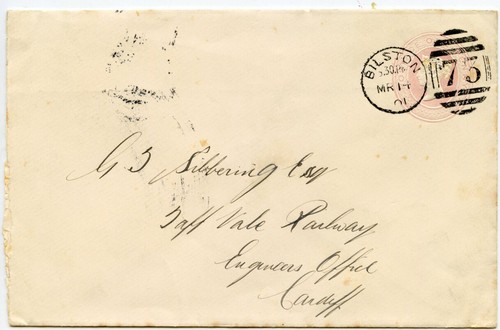 BILSTON
5.30PM
MR 14
01
75
G S Sibbering Esq
Taff Vale Railway
Engineers Office
Cardiff